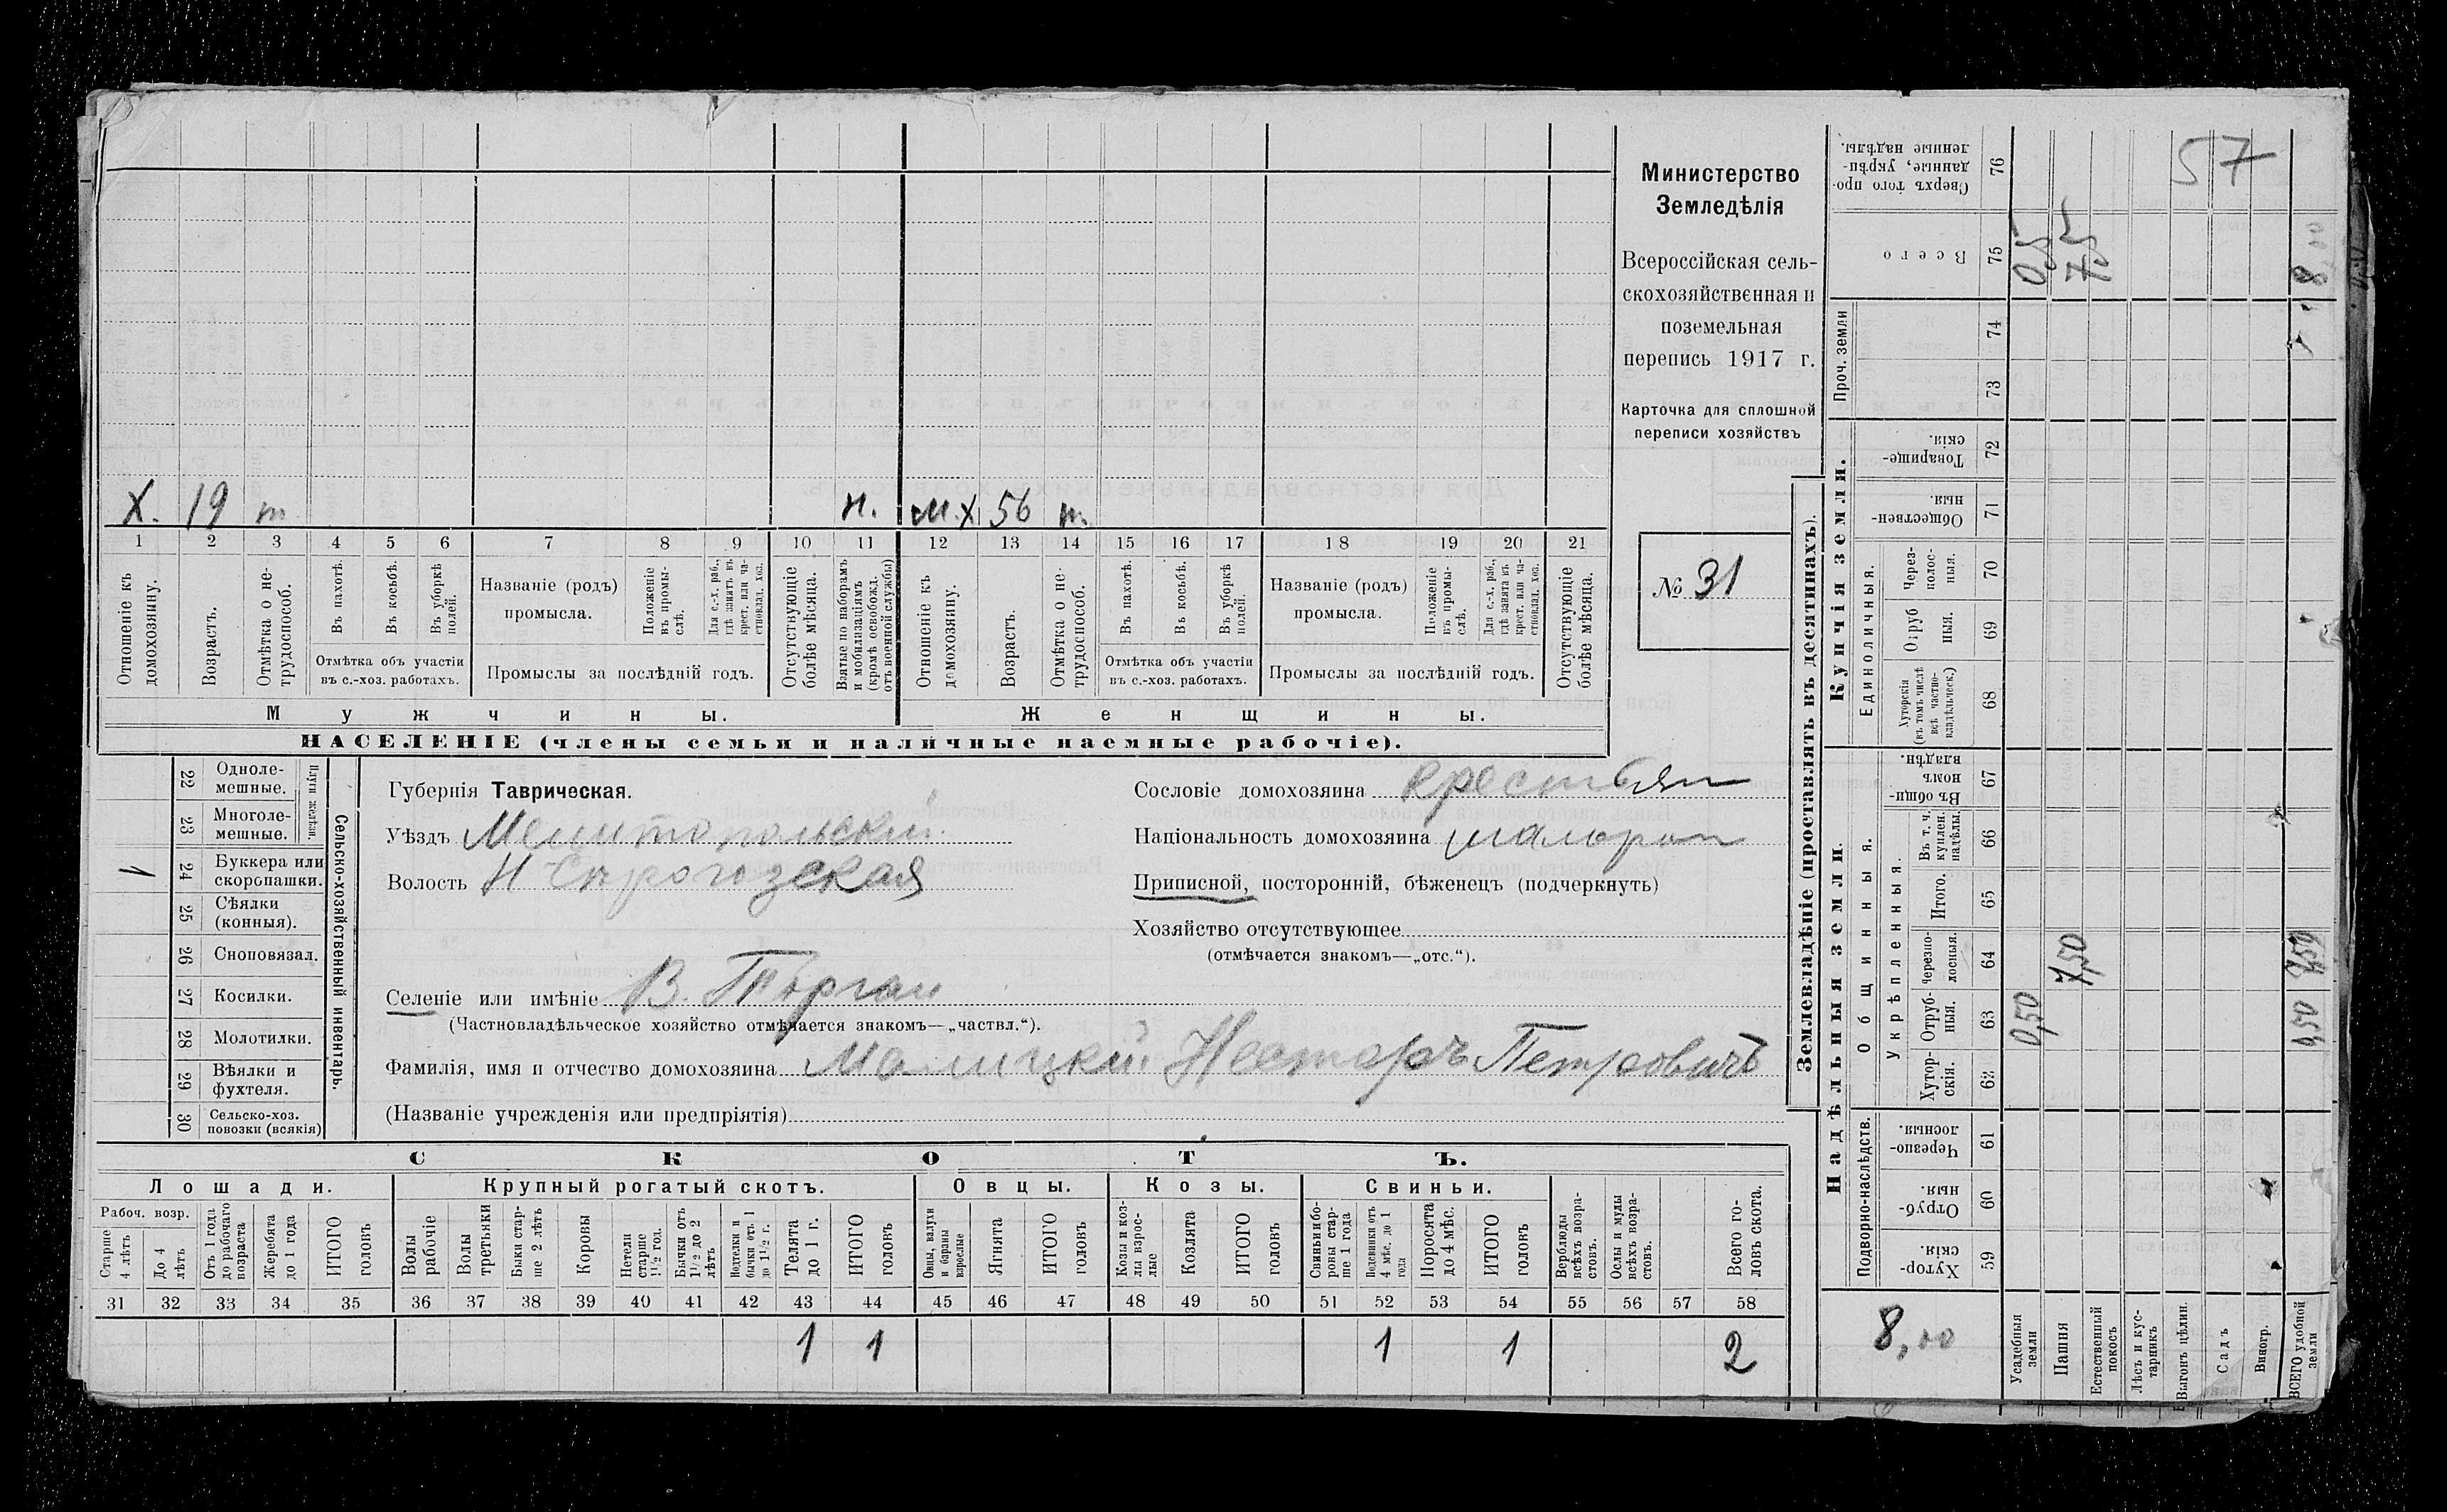 57
Х. 19 т. н. М.Х. 56 т.
1 2 3 4 5 6 7 8 9 10 11 12 13 14 15 16 17 18 19 20 21
Отношеніе къ домохозяину.
Возрастъ.
Отмѣтка о не-
трудоспособ.
Въ пахотѣ.
Въ косьбѣ.
Въ уборкѣ полей.
Отмѣтка объ участіи
въ с.-хоз. работахъ.
Названіе (родъ)
промысла.
Положеніе въ промы-
слѣ.
Для с.-х. раб.,
гдѣ занятъ въ
крест. или ча-
стновлад. хоз.
Промыслы за послѣдній годъ.
Отсутствующіе
болѣе мѣсяца.
Взятые по наборамъ
и мобилизаціямъ
(кромѣ освобожд.
отъ военной службы)
Отношеніе къ
домохозяину.
Возрастъ.
Отмѣтка о не-
трудоспособ.
Въ пахотѣ.
Въ косьбѣ.
Въ уборкѣ
полей.
Отмѣтка объ участіи
въ с.-хоз. работахъ.
Названіе (родъ)
промысла.
Положеніе
въ промы-
слѣ.
Для с.-х. раб.,
гдѣ занята въ
крест. или ча-
стновлад. хоз.
Промыслы за послѣдній годъ.
Отсутствующіе
болѣе мѣсяца.
Мужчины.
Женщины.
НАСЕЛЕНІЕ (члены семьи и наличные наемные рабочіе).
Министерство
Земледѣлія
Всероссійская сель-
скохозяйственная и
поземельная
перепись 1917 г.
Карточка для сплошной
переписи хозяйствъ
№ 31
22 Одноле-
мешные.
23 Многоле-
мешные.
1 24 Буккера или
скоропашки.
25 Сѣялки
(конныя).
26 Сноповязал.
27 Косилки.
28 Молотилки.
29 Вѣялки и
фухтеля.
30 Сельско-хоз.
повозки (всякія)
Сельско-хозяйственный инвентарь.
Губернія Таврическая.
Уѣздъ Мелитопольскій
Волость Н Сѣрогозская
Селеніе или имѣніе В. Торгаи
(Частновладѣльческое хозяйство отмѣчается знакомъ—„частвл.“).
Фамилія, имя и отчество домохозяина Малицкій Несторъ Петровичъ
(Названіе учрежденія или предпріятія)
Сословіе домохозяина крестьян
Національность домохозяина малорос
Приписной, посторонній, бѣженецъ (подчеркнуть)
Хозяйство отсутствующее
(отмѣчается знакомъ—„отс.“).
СКОТЪ.
Лошади. Крупный рогатый скотъ. Овцы. Козы. Свиньи.
Рабоч. возр.
Старше
4 лѣтъ
До 4
лѣтъ
Отъ 1 года
до рабочаго
возраста
Жеребята
до 1 года
ИТОГО
головъ
Волы
рабочіе
Волы
третьяки
Быки стар-
ше 2 лѣтъ
Коровы
Нетели
старше
1½ год.
Бычки отъ
1½ до 2
лѣтъ
Подтелки и
бычки отъ 1
до 1½ г.
Телята
до 1 г.
ИТОГО
головъ
Овцы, валухи
и бараны
взрослые
Ягнята
ИТОГО
головъ
Козы и коз-
лы взрос-
лые
Козлята
ИТОГО
головъ
Свиньи и бо-
ровы стар-
ше 1 года
Подсвинки отъ
4 мѣс. до 1
года
Поросята
до 4 мѣс.
ИТОГО
головъ
Верблюды
всѣхъ возра-
стовъ.
Ослы и мулы
всѣхъ возра-
стовъ.
Всего го-
ловъ скота.
31 32 33 34 35 36 37 38 39 40 41 42 43 44 45 46 47 48 49 50 51 52 53 54 55 56 57 58
1 1 1 1 2
Землевладѣніе (проставлять въ десятинахъ).
Сверхъ того про-
данные, укрѣп-
ленные надѣлы.
76
Всего
75
0,5
7,5
8,00
Проч. земли
74
73
Купчія земли.
Товарище-
скія.
72
Обществен-
ныя.
71
Единоличныя.
Через-
полос-
ныя.
70
Отруб
ныя.
69
Хуторскія
(въ томъ числѣ
всѣ частно-
владѣльческ.)
68
Надѣльныя земли.
Общинныя.
Въ общи-
номъ
владѣн.
67
Укрѣпленныя.
Въ т. ч.
куплен.
надѣлы.
66
Итого.
65
Черезпо-
лосныя.
64
7,50
7,50
Отруб-
ныя.
63
0,50
0,50
Хутор-
скія.
62
Подворно-наслѣдств.
Черезпо-
лосныя.
61
Отруб-
ныя.
60
Хутор-
скія.
59
8,00
Усадебныя
земли
Пашня
Естественный
покосъ
Лѣсъ и кус-
тарникъ
Выгонъ цѣлин.
Садъ
Виногр.
ВСЕГО удобной
земли